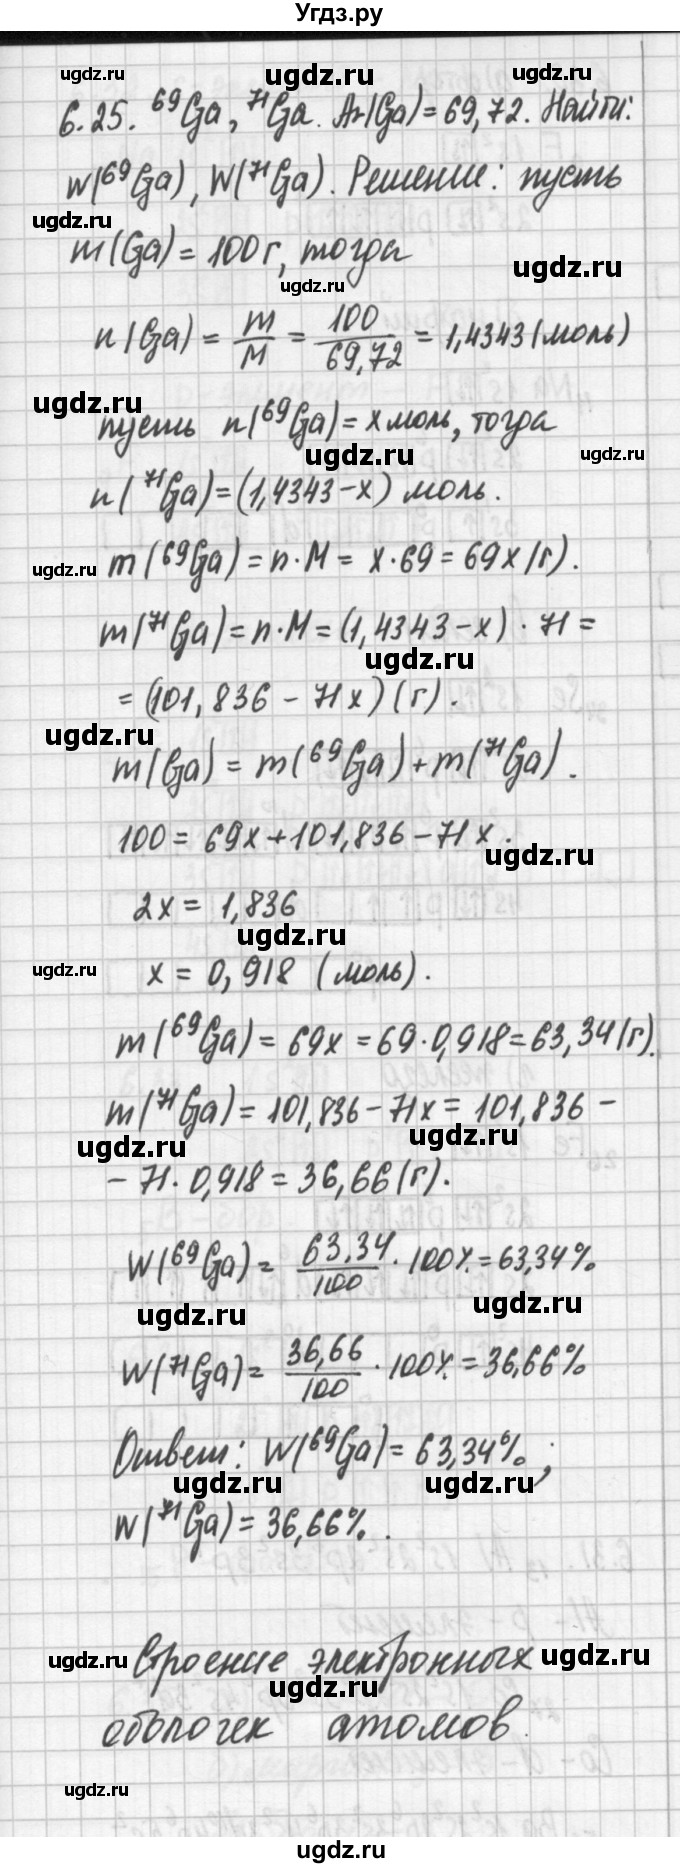 Угдз.ру
ugdz.ru ugdz.ru ugdz.ru
6.25. ⁶⁹Ga, ⁷¹Ga. Ar(Ga)=69,72. Найти:
W(⁶⁹Ga), W(⁷¹Ga). Решение: пусть
ugdz.ru
m(Ga)=100г, тогда
ugdz.ru ugdz.ru
n(Ga) = m/M = 100/69,72 = 1,4343(моль)
ugdz.ru
пусть n(⁶⁹Ga)=x моль, тогда
ugdz.ru ugdz.ru
n(⁷¹Ga)=(1,4343-x) моль.
ugdz.ru
m(⁶⁹Ga)=n·M= x·69=69x(г).
m(⁷¹Ga)=n·M=(1,4343-x)·71=
ugdz.ru
=(101,836-71x)(г).
ugdz.ru
m(Ga)=m(⁶⁹Ga)+m(⁷¹Ga).
100=69x+101,836-71x.
ugdz.ru
2x=1,836
ugdz.ru
ugdz.ru
x=0,918 (моль).
m(⁶⁹Ga)=69x=69·0,918=63,34(г).
m(⁷¹Ga)=101,836-71x=101,836-
ugdz.ru ugdz.ru
-71·0,918=36,66(г).
W(⁶⁹Ga)= 63,34/100 ·100%=63,34%
ugdz.ru ugdz.ru
W(⁷¹Ga)= 36,66/100 ·100%=36,66%
Ответ: W(⁶⁹Ga)=63,34%;
ugdz.ru ugdz.ru
W(⁷¹Ga)=36,66%.
Строение электронных
ugdz.ru ugdz.ru ugdz.ru
оболочек атомов.
ugdz.ru
ugdz.ru